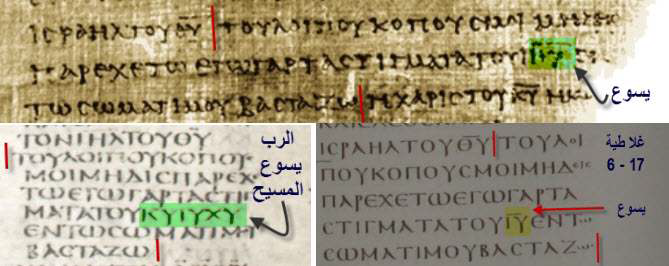 ΙϹΡΑΗΛΤΟΥΘ̅Υ̅ ΤΟΥΛΟΙΠΟΥΚΟΠΟΥϹΜΟΙ
ΠΑΡΕΧΕΤΩΕΓΩΓΑΡΤΑϹΤΙΓΜΑΤΑΤΟΥΙ̅Υ̅
ΤΩϹΩΜΑΤΙΜΟΥΒΑϹΤΑΖΩ ΗΧΑΡΙϹΤΟΥΚ̅Υ̅
يسوع
ΤΟΝΙΗΛΤΟΥΘ̅Υ̅
ΤΟΥΛΟΙΠΟΥΚΟΠΟΥ
ΜΟΙΜΗΔΙϹΠΑΡΕΧ
ΤΩΕΓΩΓΑΡΤΑϹΤΙ
ΜΑΤΑΤΟΥΚΥΙΥΧΥ
ΕΝΤΩϹΩΜΑΤΙΜ
ΒΑϹΤΑΖΩ
الرب
يسوع
المسيح
ΙϹΡΑΗΛΤΟΥΘ̅Υ̅ ΤΟΥΛΟΙ
ΠΟΥΚΟΠΟΥϹΜΟΙΜΗΔΕΙϹ
ΠΑΡΕΧΕΤΩΕΓΩΓΑΡΤΑ
ϹΤΙΓΜΑΤΑΤΟΥΙ̅Υ̅ΕΝΤ
ϹΩΜΑΤΙΜΟΥΒΑϹΤΑΖ
غلاطية
6 - 17
يسوع